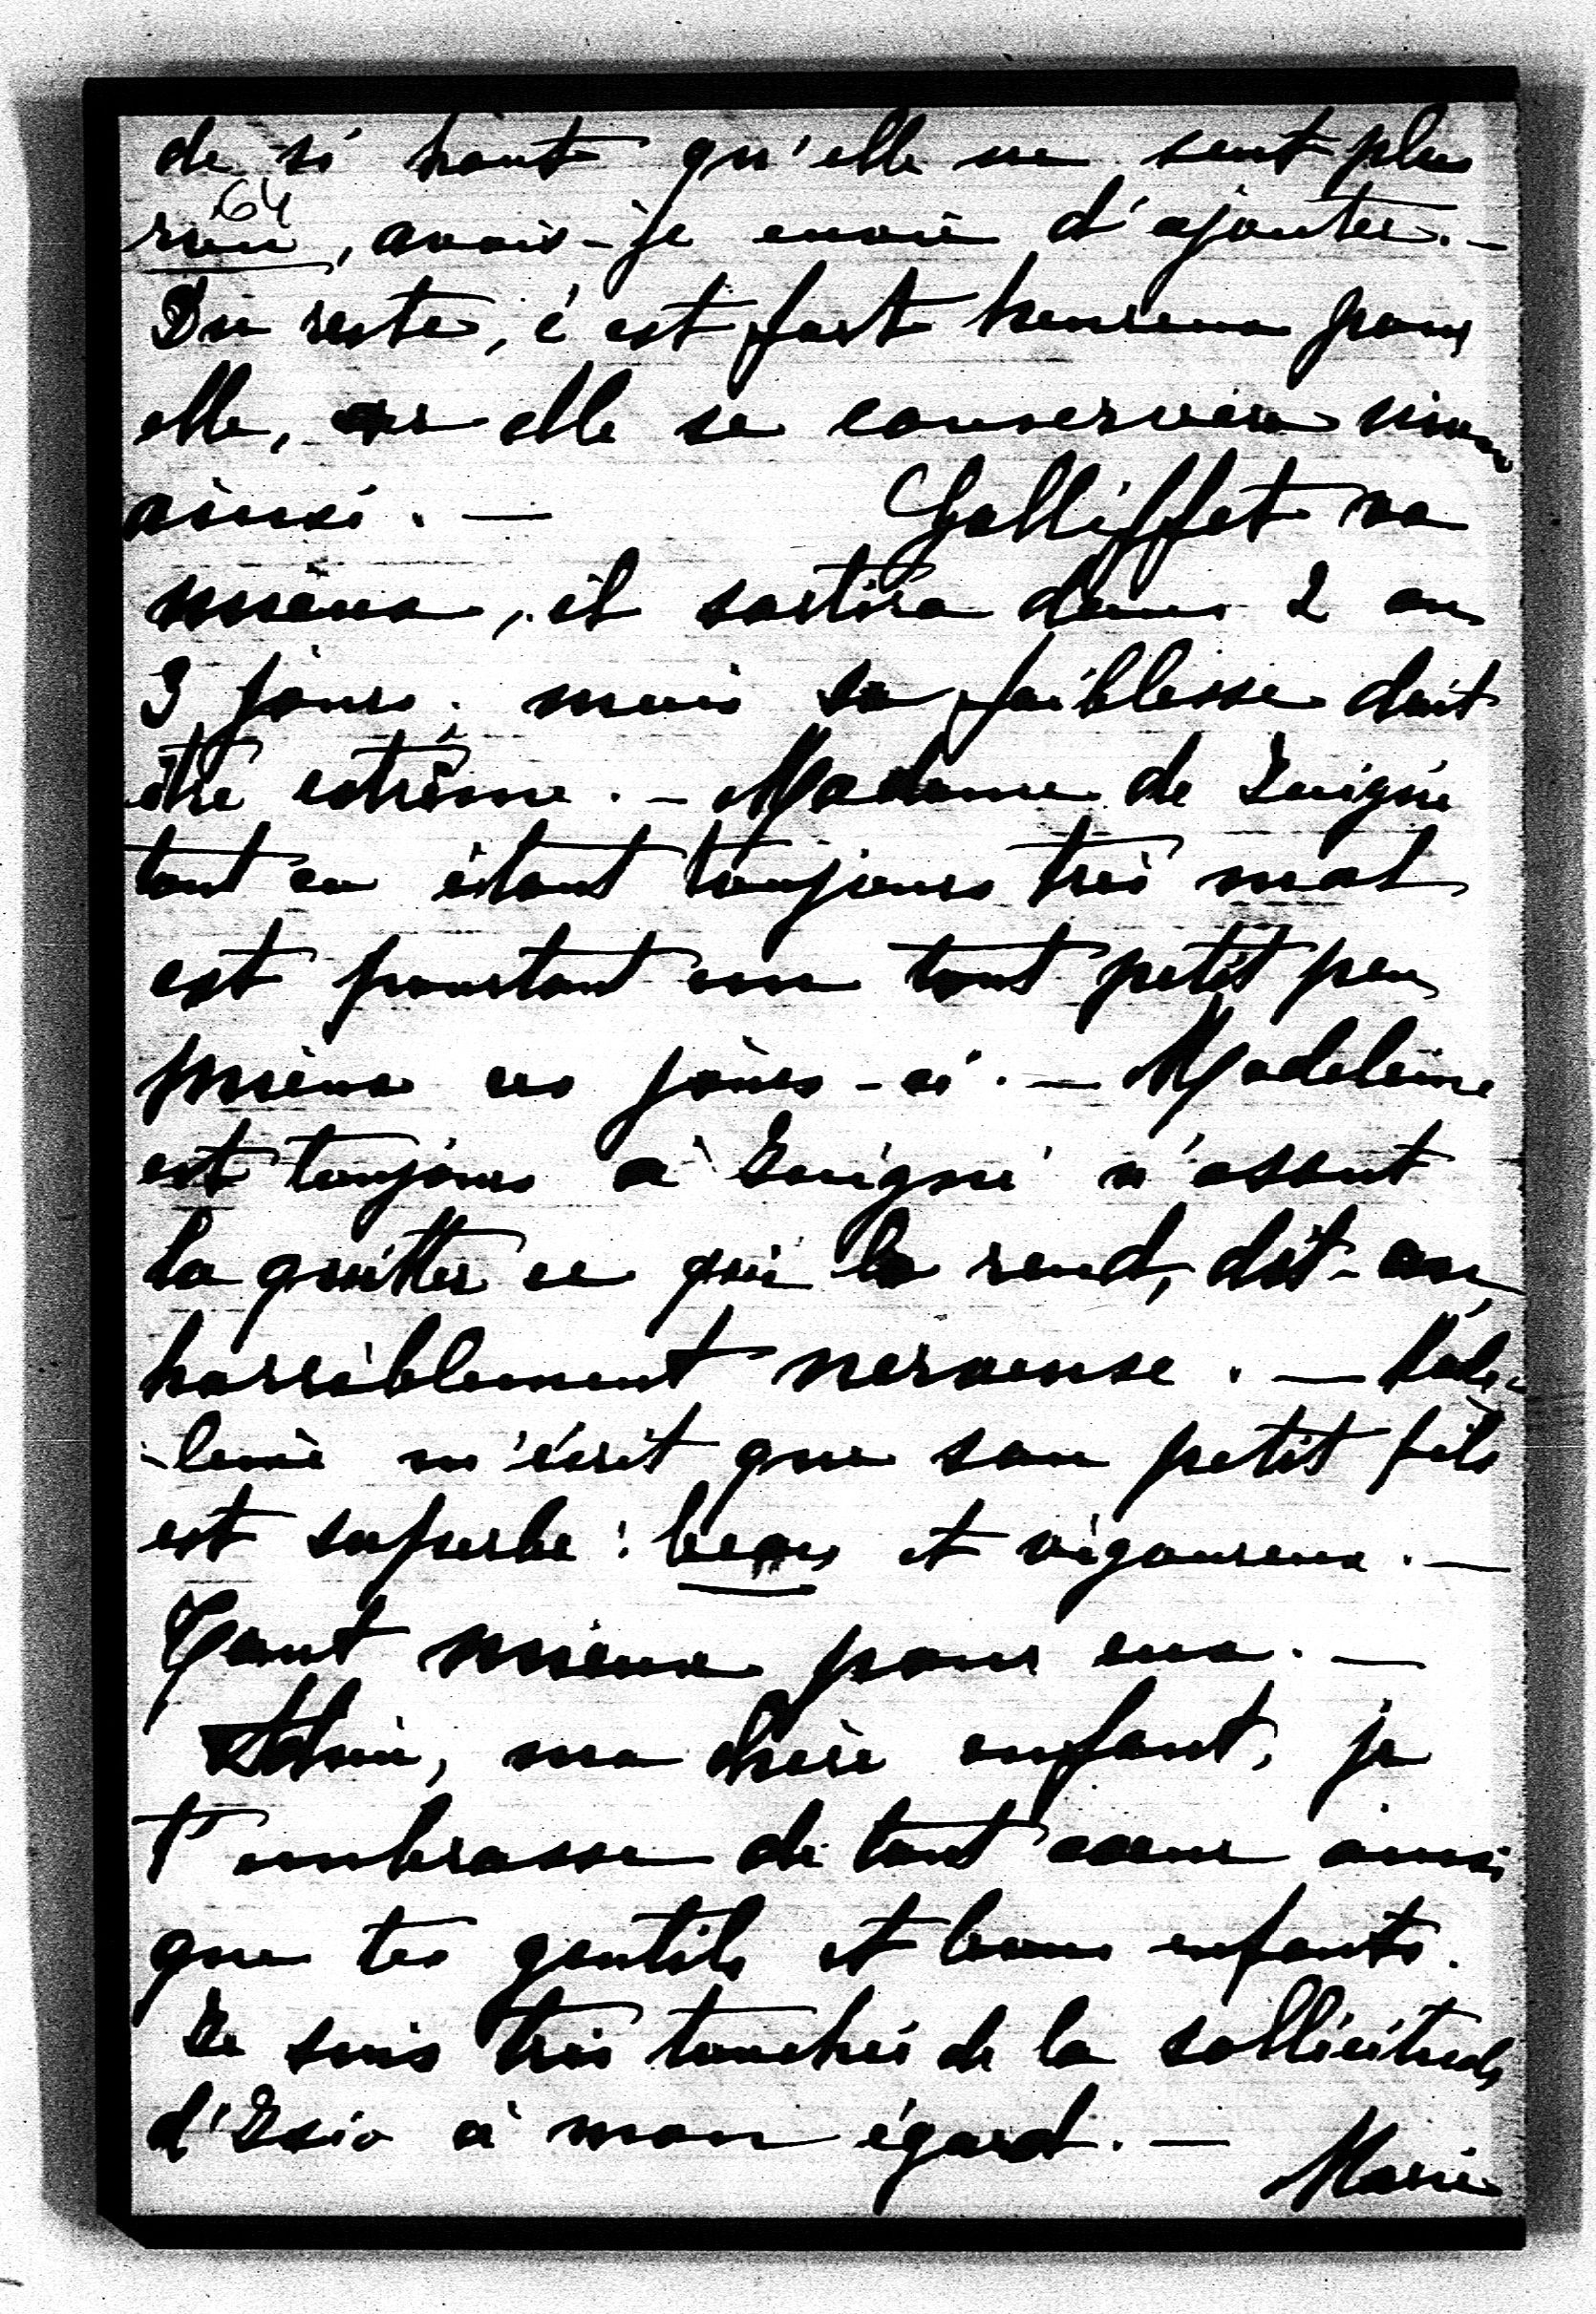 de si haut qu'elle ne sent plus
64
rien, avais-je envie d'ajouter. —
Du reste, c'est fort heureux pour
elle, car elle se conservera mieux
ainsi. — Galliffet va
mieux, il sortira dans 2 ou
3 jours; mais sa faiblesse doit
être extrême. — Madame de Juigné
tout en étant toujours très mal
est pourtant un tout petit peu
mieux ces jours-ci. — Madeleine
est toujours à Juigné n'osant
la quitter ce qui la rend, dit-on,
horriblement nerveuse. — Made-
-leine m'écrit que son petit fils
est superbe : beau et vigoureux. —
Tant mieux pour eux. —
Adieu, ma chère enfant, je
t'embrasse de tout cœur ainsi
que tes gentils et bons enfants.
Je suis très touchée de la sollicitude
à mon égard. —
Marie